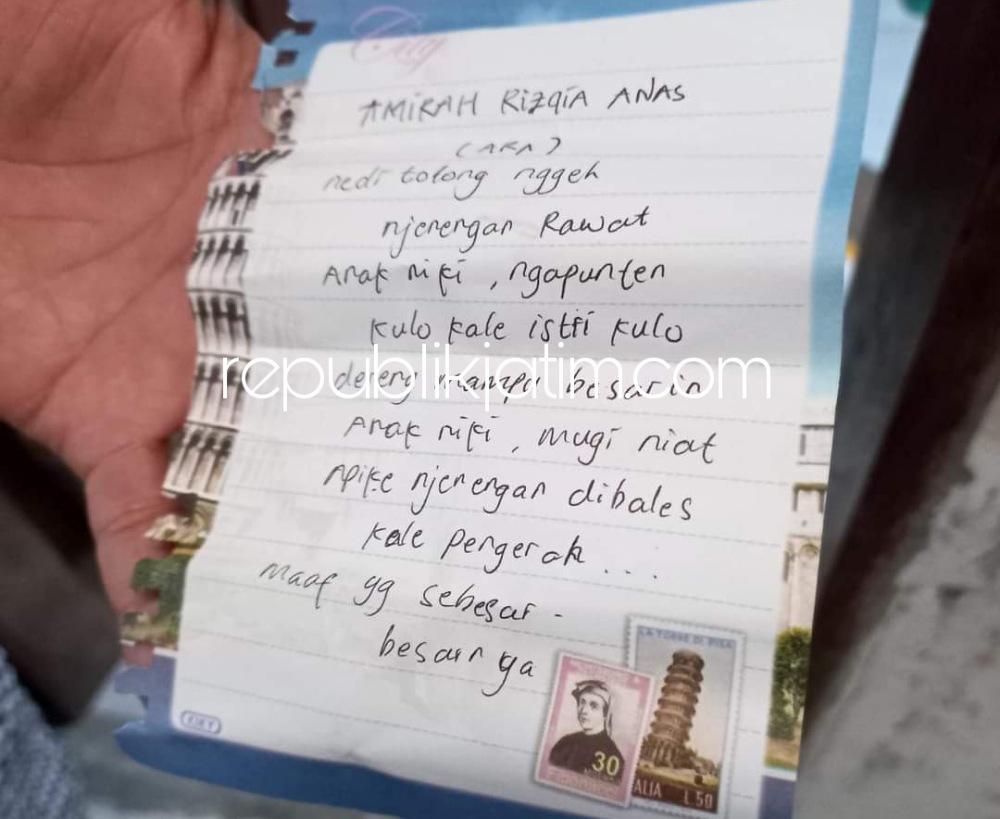 City
AMIRAH RIZQIA ANAS
(ARA)
nedi tolong nggeh
njenengan Rawat
Anak niki, ngapunten
kulo kale istri kulo
republikjatim.com
dereng mampu besarin
Anak niki, mugi niat
Apike njenengan dibales
kale pengeran...
maaf yg sebesar-
besarnya
LA TORRE DI PISA
30
ALIA L.50